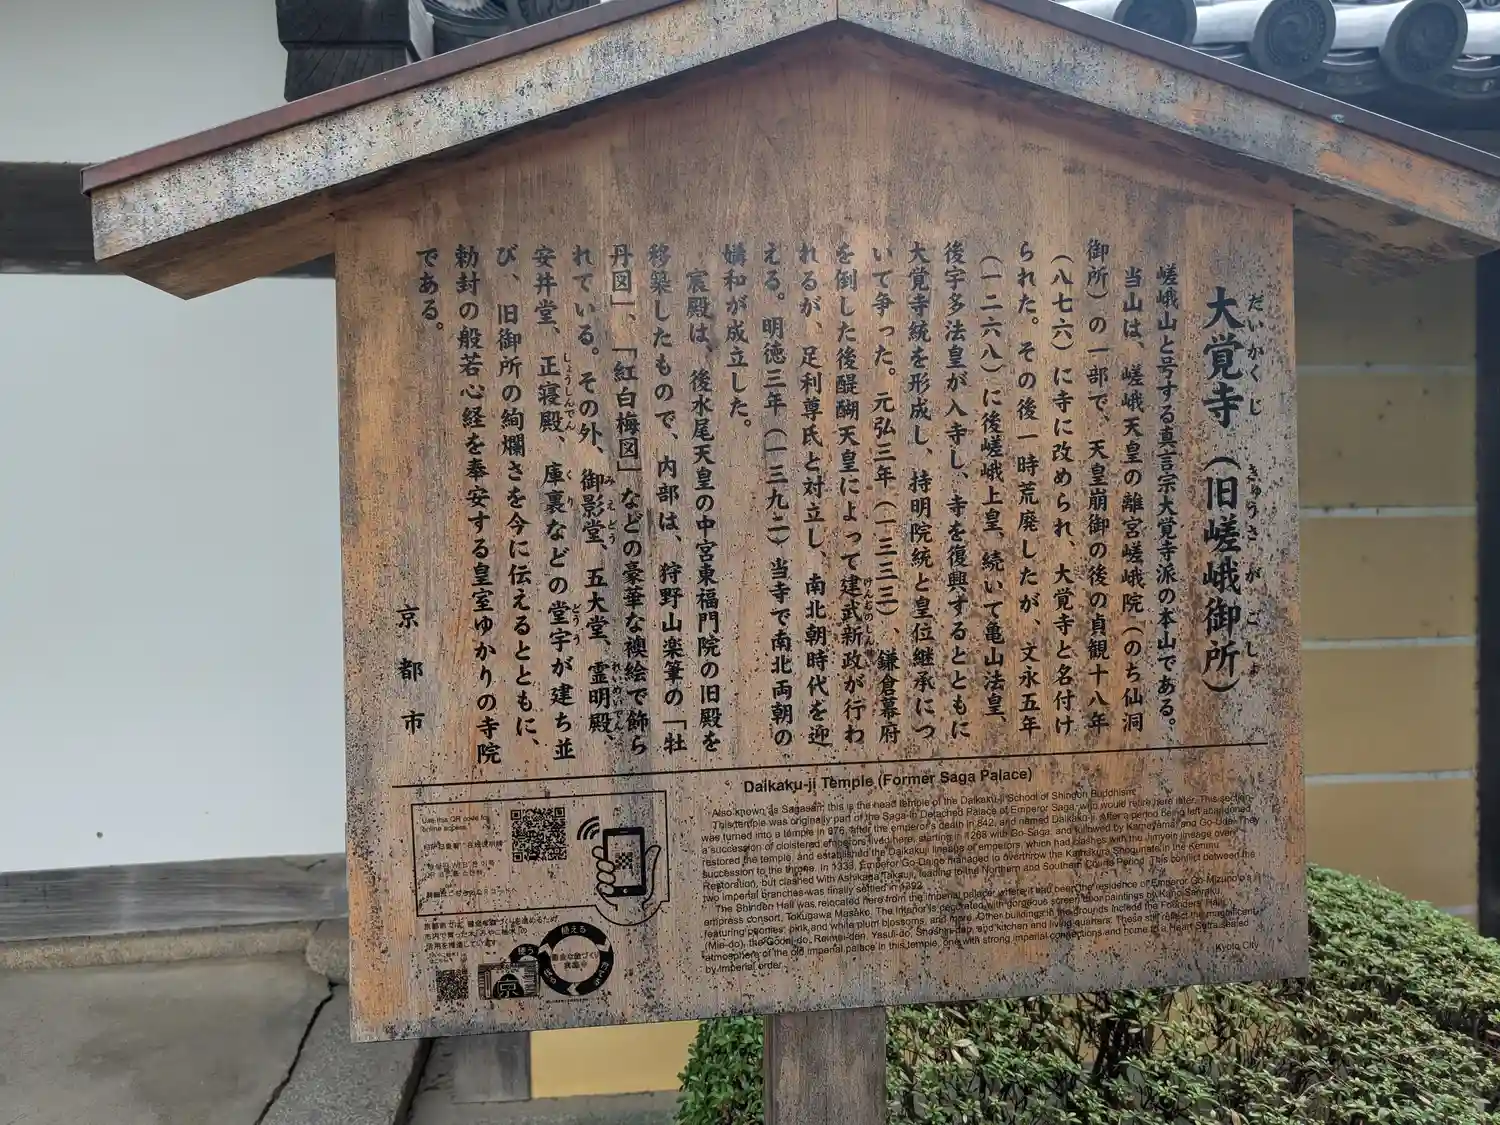 大覚寺（旧嵯峨御所）
だいかくじ　きゅうさがごしょ
嵯峨山と号する真言宗大覚寺派の本山である。
当山は、嵯峨天皇の離宮嵯峨院（のち仙洞
御所）の一部で、天皇崩御の後の貞観十八年
（八七六）に寺に改められ、大覚寺と名付け
られた。その後一時荒廃したが、文永五年
（一二六八）に後嵯峨上皇、続いて亀山法皇、
後宇多法皇が入寺し、寺を復興するとともに
大覚寺統を形成し、持明院統と皇位継承につ
いて争った。元弘三年（一三三三）、鎌倉幕府
を倒した後醍醐天皇によって建武新政が行わ
けんむのしんせい
れるが、足利尊氏と対立し、南北朝時代を迎
える。明徳三年（一三九二）当寺で南北両朝の
媾和が成立した。
宸殿は、後水尾天皇の中宮東福門院の旧殿を
移築したもので、内部は、狩野山楽筆の「牡
丹図」、「紅白梅図」などの豪華な襖絵で飾ら
れている。その外、御影堂、五大堂、霊明殿、
みえどう　れいめいでん
安井堂、正寝殿、庫裏などの堂宇が建ち並
しょうしんでん　くり　どうう
び、旧御所の絢爛さを今に伝えるとともに、
勅封の般若心経を奉安する皇室ゆかりの寺院
である。
京都市
Daikaku-ji Temple (Former Saga Palace)
Also known as Sagasan, this is the head temple of the Daikaku-ji School of Shingon Buddhism.
This temple was originally part of the Saga-in Detached Palace of Emperor Saga, who would retire here later. This section
was turned into a temple in 876, after the emperor's death in 842, and named Daikaku-ji. After a period being left abandoned,
a succession of cloistered emperors lived here, starting in 1268 with Go-Saga, and followed by Kameyama and Go-Uda. They
restored the temple, and established the Daikakuji lineage of emperors, which had clashes with the Jimyoin lineage over
succession to the throne. In 1333, Emperor Go-Daigo managed to overthrow the Kamakura Shogunate in the Kenmu
Restoration, but clashed with Ashikaga Takauji, leading to the Northern and Southern Courts Period. This conflict between the
two imperial branches was finally settled in 1392.
The Shinden Hall was relocated here from the imperial palace, where it had been the residence of Emperor Go-Mizuno'o's
empress consort, Tokugawa Masako. The interior is decorated with gorgeous screen door paintings by Kano Sanraku,
featuring peonies, pink and white plum blossoms, and more. Other buildings in the grounds include the Founders' Hall
(Mie-do), the Godai-do, Reimei-den, Yasui-do, Shoshin-den, and kitchen and living quarters. These still reflect the magnificent
atmosphere of the old imperial palace in this temple, one with strong imperial connections and home to a Heart Sutra sealed
by imperial order.
Kyoto City
Use this QR code for
online access.
植える
京